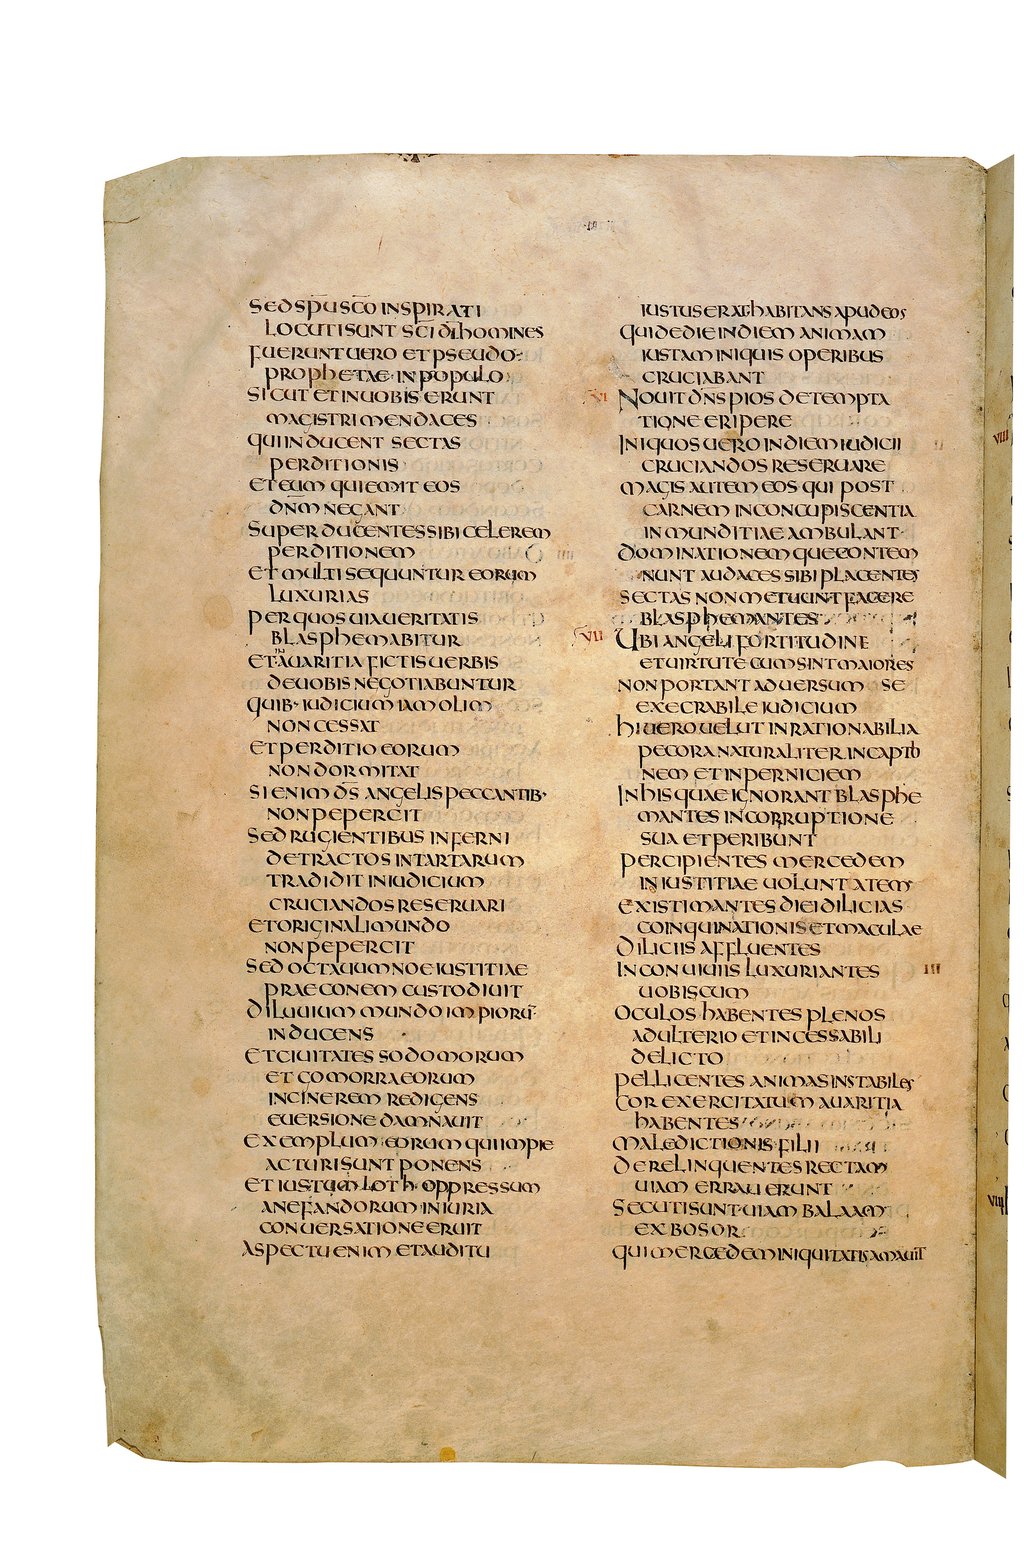 SED SP̅U SC̅O INSPIRATI
LOCUTI SUNT SC̅I D̅I HOMINES
FUERUNT UERO ET PSEUDO
PROPHETAE IN POPULO
SICUT ET IN UOBIS ERUNT
MAGISTRI MENDACES
QUI INDUCENT SECTAS
PERDITIONIS
ET EUM QUI EMIT EOS
DN̅M NEGANT
SUPERDUCENTES SIBI CELEREM
PERDITIONEM
ET MULTI SEQUUNTUR EORUM
LUXURIAS
PER QUOS UIA UERITATIS
BLASPHEMABITUR
ET IN AUARITIA FICTIS UERBIS
DE UOBIS NEGOTIABUNTUR
QUIB· IUDICIUM IAM OLIM
NON CESSAT
ET PERDITIO EORUM
NON DORMITAT
SI ENIM D̅S ANGELIS PECCANTIB·
NON PEPERCIT
SED RUGIENTIBUS INFERNI
DETRACTOS IN TARTARUM
TRADIDIT IN IUDICIUM
CRUCIANDOS RESERUARI
ET ORIGINALI MUNDO
NON PEPERCIT
SED OCTAUUM NOE IUSTITIAE
PRAECONEM CUSTODIUIT
DILUUIUM MUNDO IMPIORU̅
INDUCENS
ET CIUITATES SODOMORUM
ET GOMORRAEORUM
IN CINEREM REDIGENS
EUERSIONE DAMNAUIT
EXEMPLUM EORUM QUI IMPIE
ACTURI SUNT PONENS
ET IUSTUM LOTH OPPRESSUM
A NEFANDORUM INIURIA
CONUERSATIONE ERUIT
ASPECTU ENIM ET AUDITU
IUSTUS ERAT HABITANS APUD EOS
QUI DE DIE IN DIEM ANIMAM
IUSTAM INIQUIS OPERIBUS
CRUCIABANT
VI NOUIT DN̅S PIOS DE TEMPTA
TIONE ERIPERE
INIQUOS UERO IN DIEM IUDICII
CRUCIANDOS RESERUARE
MAGIS AUTEM EOS QUI POST
CARNEM IN CONCUPISCENTIA
INMUNDITIAE AMBULANT
DOMINATIONEMQUE CONTEM
NUNT AUDACES SIBI PLACENTES
SECTAS NON METUUNT FACERE
BLASPHEMANTES
VII UBI ANGELI FORTITUDINE
ET UIRTUTE CUM SINT MAIORES
NON PORTANT ADUERSUM SE
EXECRABILE IUDICIUM
HI UERO UELUT INRATIONABILIA
PECORA NATURALITER IN CAPTIO
NEM ET IN PERNICIEM
IN HIS QUAE IGNORANT BLASPHE
MANTES IN CORRUPTIONE
SUA ET PERIBUNT
PERCIPIENTES MERCEDEM
INIUSTITIAE UOLUNTATEM
EXISTIMANTES DIEI DILICIAS
COINQUINATIONIS ET MACULAE
DILICIIS AFFLUENTES
IN CONUIUIIS LUXURIANTES III
UOBISCUM
OCULOS HABENTES PLENOS
ADULTERIO ET INCESSABILI
DELICTO
PELLICENTES ANIMAS INSTABILES
COR EXERCITATUM AUARITIA
HABENTES
MALEDICTIONIS FILII
DERELINQUENTES RECTAM
UIAM ERRAUERUNT
SECUTI SUNT UIAM BALAAM
EX BOSOR
QUI MERCEDEM INIQUITATIS AMAUIT
VIII
VIIII